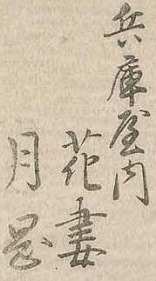 兵庫屋内
花妻
月岡